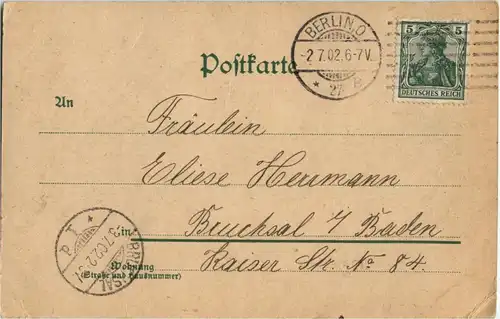 BERLIN, O
-2.7.02.6-7V.
* 27 B
5 5
DEUTSCHES REICH
Postkarte
An
Fräulein
Eliese Herrmann
in
Bruchsal i/ Baden
BRUCHSAL
Wohnung
(Straße und Hausnummer)
Kaiser Str. No 84.